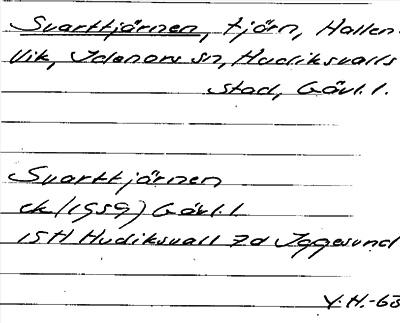 Svarttjärnen, tjärn, Hallen-
vik, Idenors sn, Hudiksvalls
stad, Gävl. l.
Svarttjärnen
ek (1959) Gävl. l
15H Hudiksvall 7d Iggesund
V.H.-63